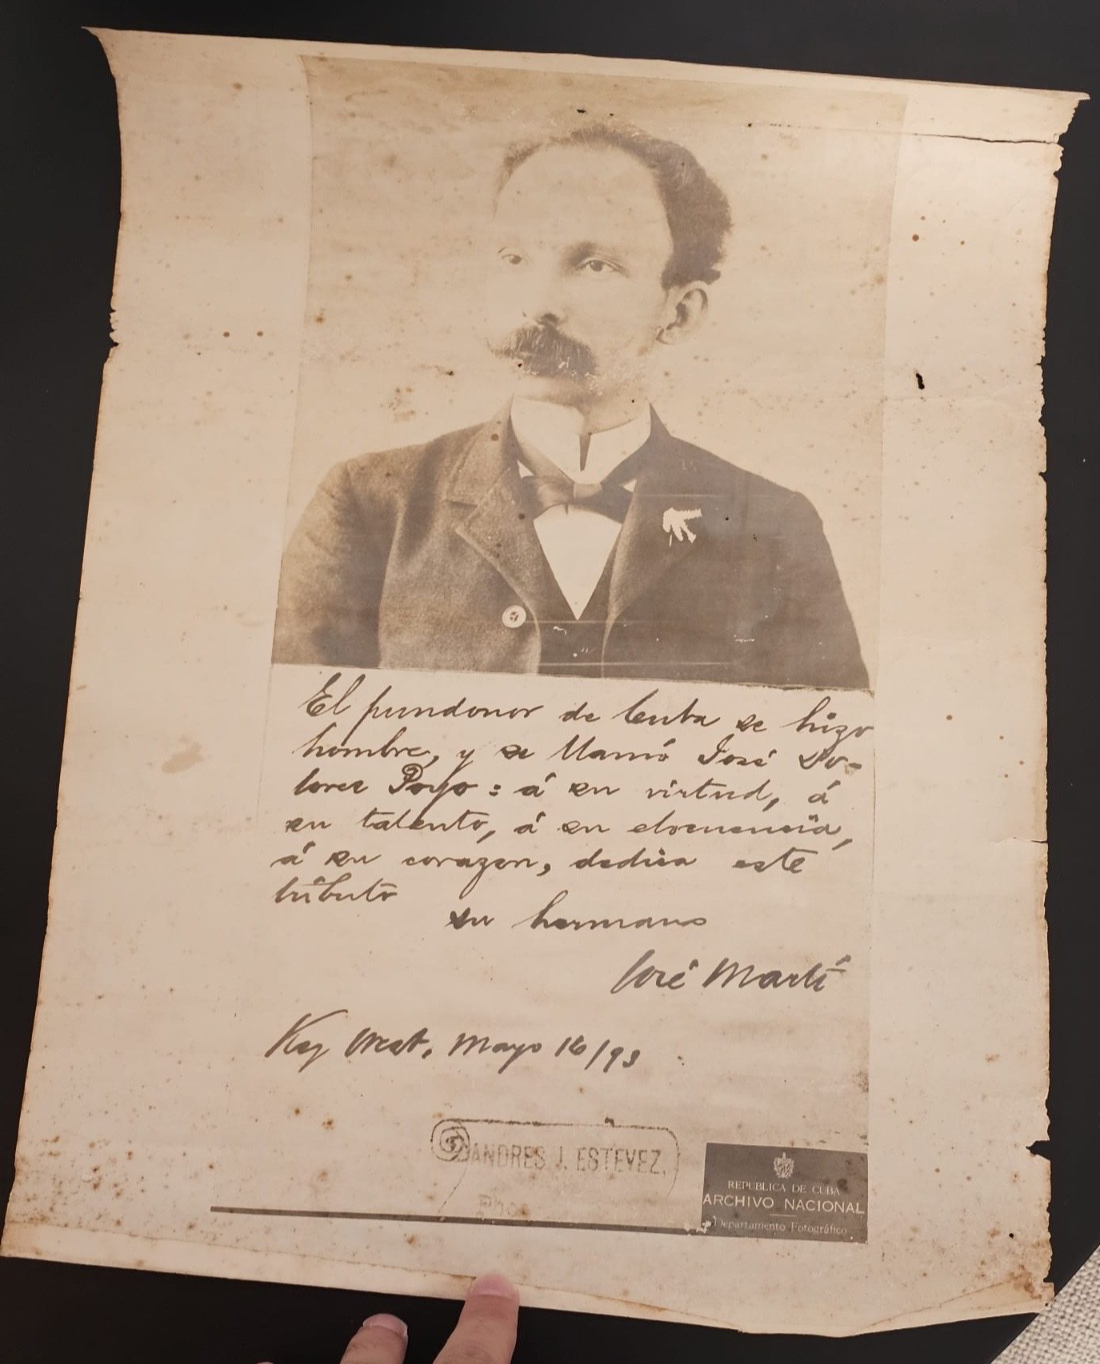 El pundonor de Cuba se hizo
hombre, y se llamó José Do-
lores Poyo: á su virtud, á
su talento, á su elocuencia,
á su corazon, dedica este
tributo
su hermano
José Martí
Key West, Mayo 16/93
ANDRES J. ESTEVEZ.
REPUBLICA DE CUBA
ARCHIVO NACIONAL
Departamento Fotográfico